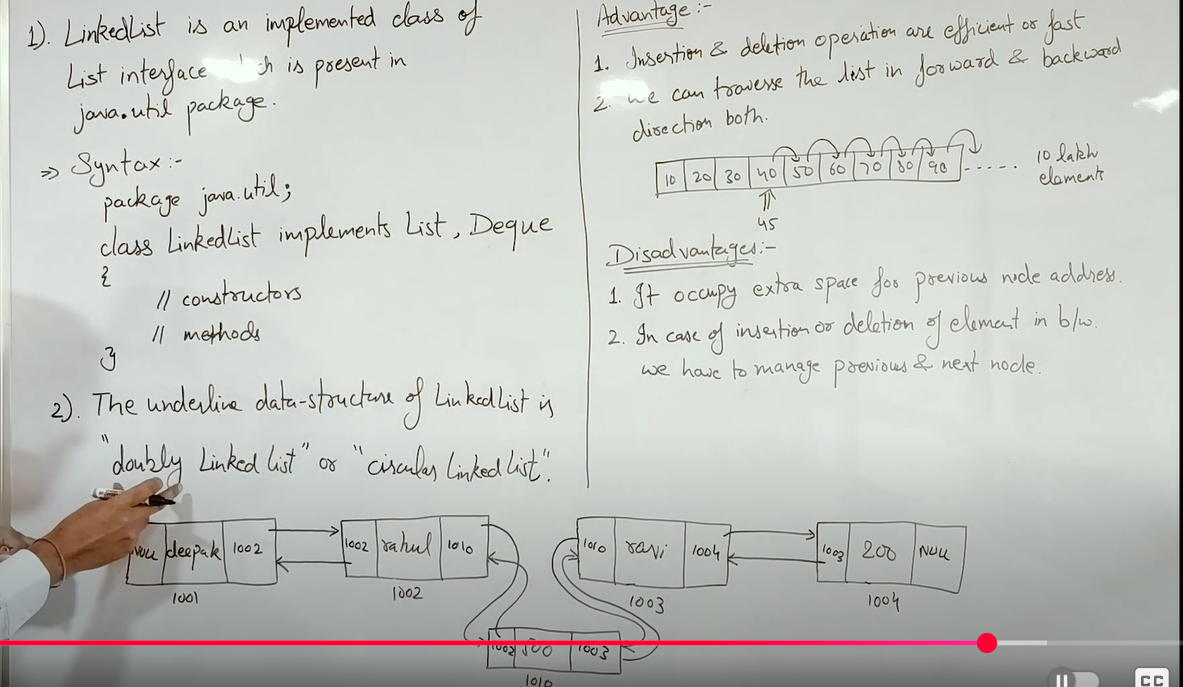 1). LinkedList is an implemented class of
List interface ch is present in
java.util package.
⇒ Syntax:-
package java.util;
class LinkedList implements List, Deque
{
// constructors
// methods
}
2). The underline data-structure of LinkedList is
"doubly Linked list" or "circular Linked List".
Advantage:-
1. Insertion & deletion operation are efficient or fast
2. we can traverse the list in forward & backward
direction both.
10 20 30 40 50 60 70 80 90 ...... 10 lakh
elements
45
Disadvantages:-
1. It occupy extra space for previous node address.
2. In case of insertion or deletion of element in b/w.
we have to manage previous & next node.
Null deepak 1002
1001
1002 rahul 1010
1002
1010 ravi 1004
1003
1003 200 Null
1004
1002 500 1003
1010
CC